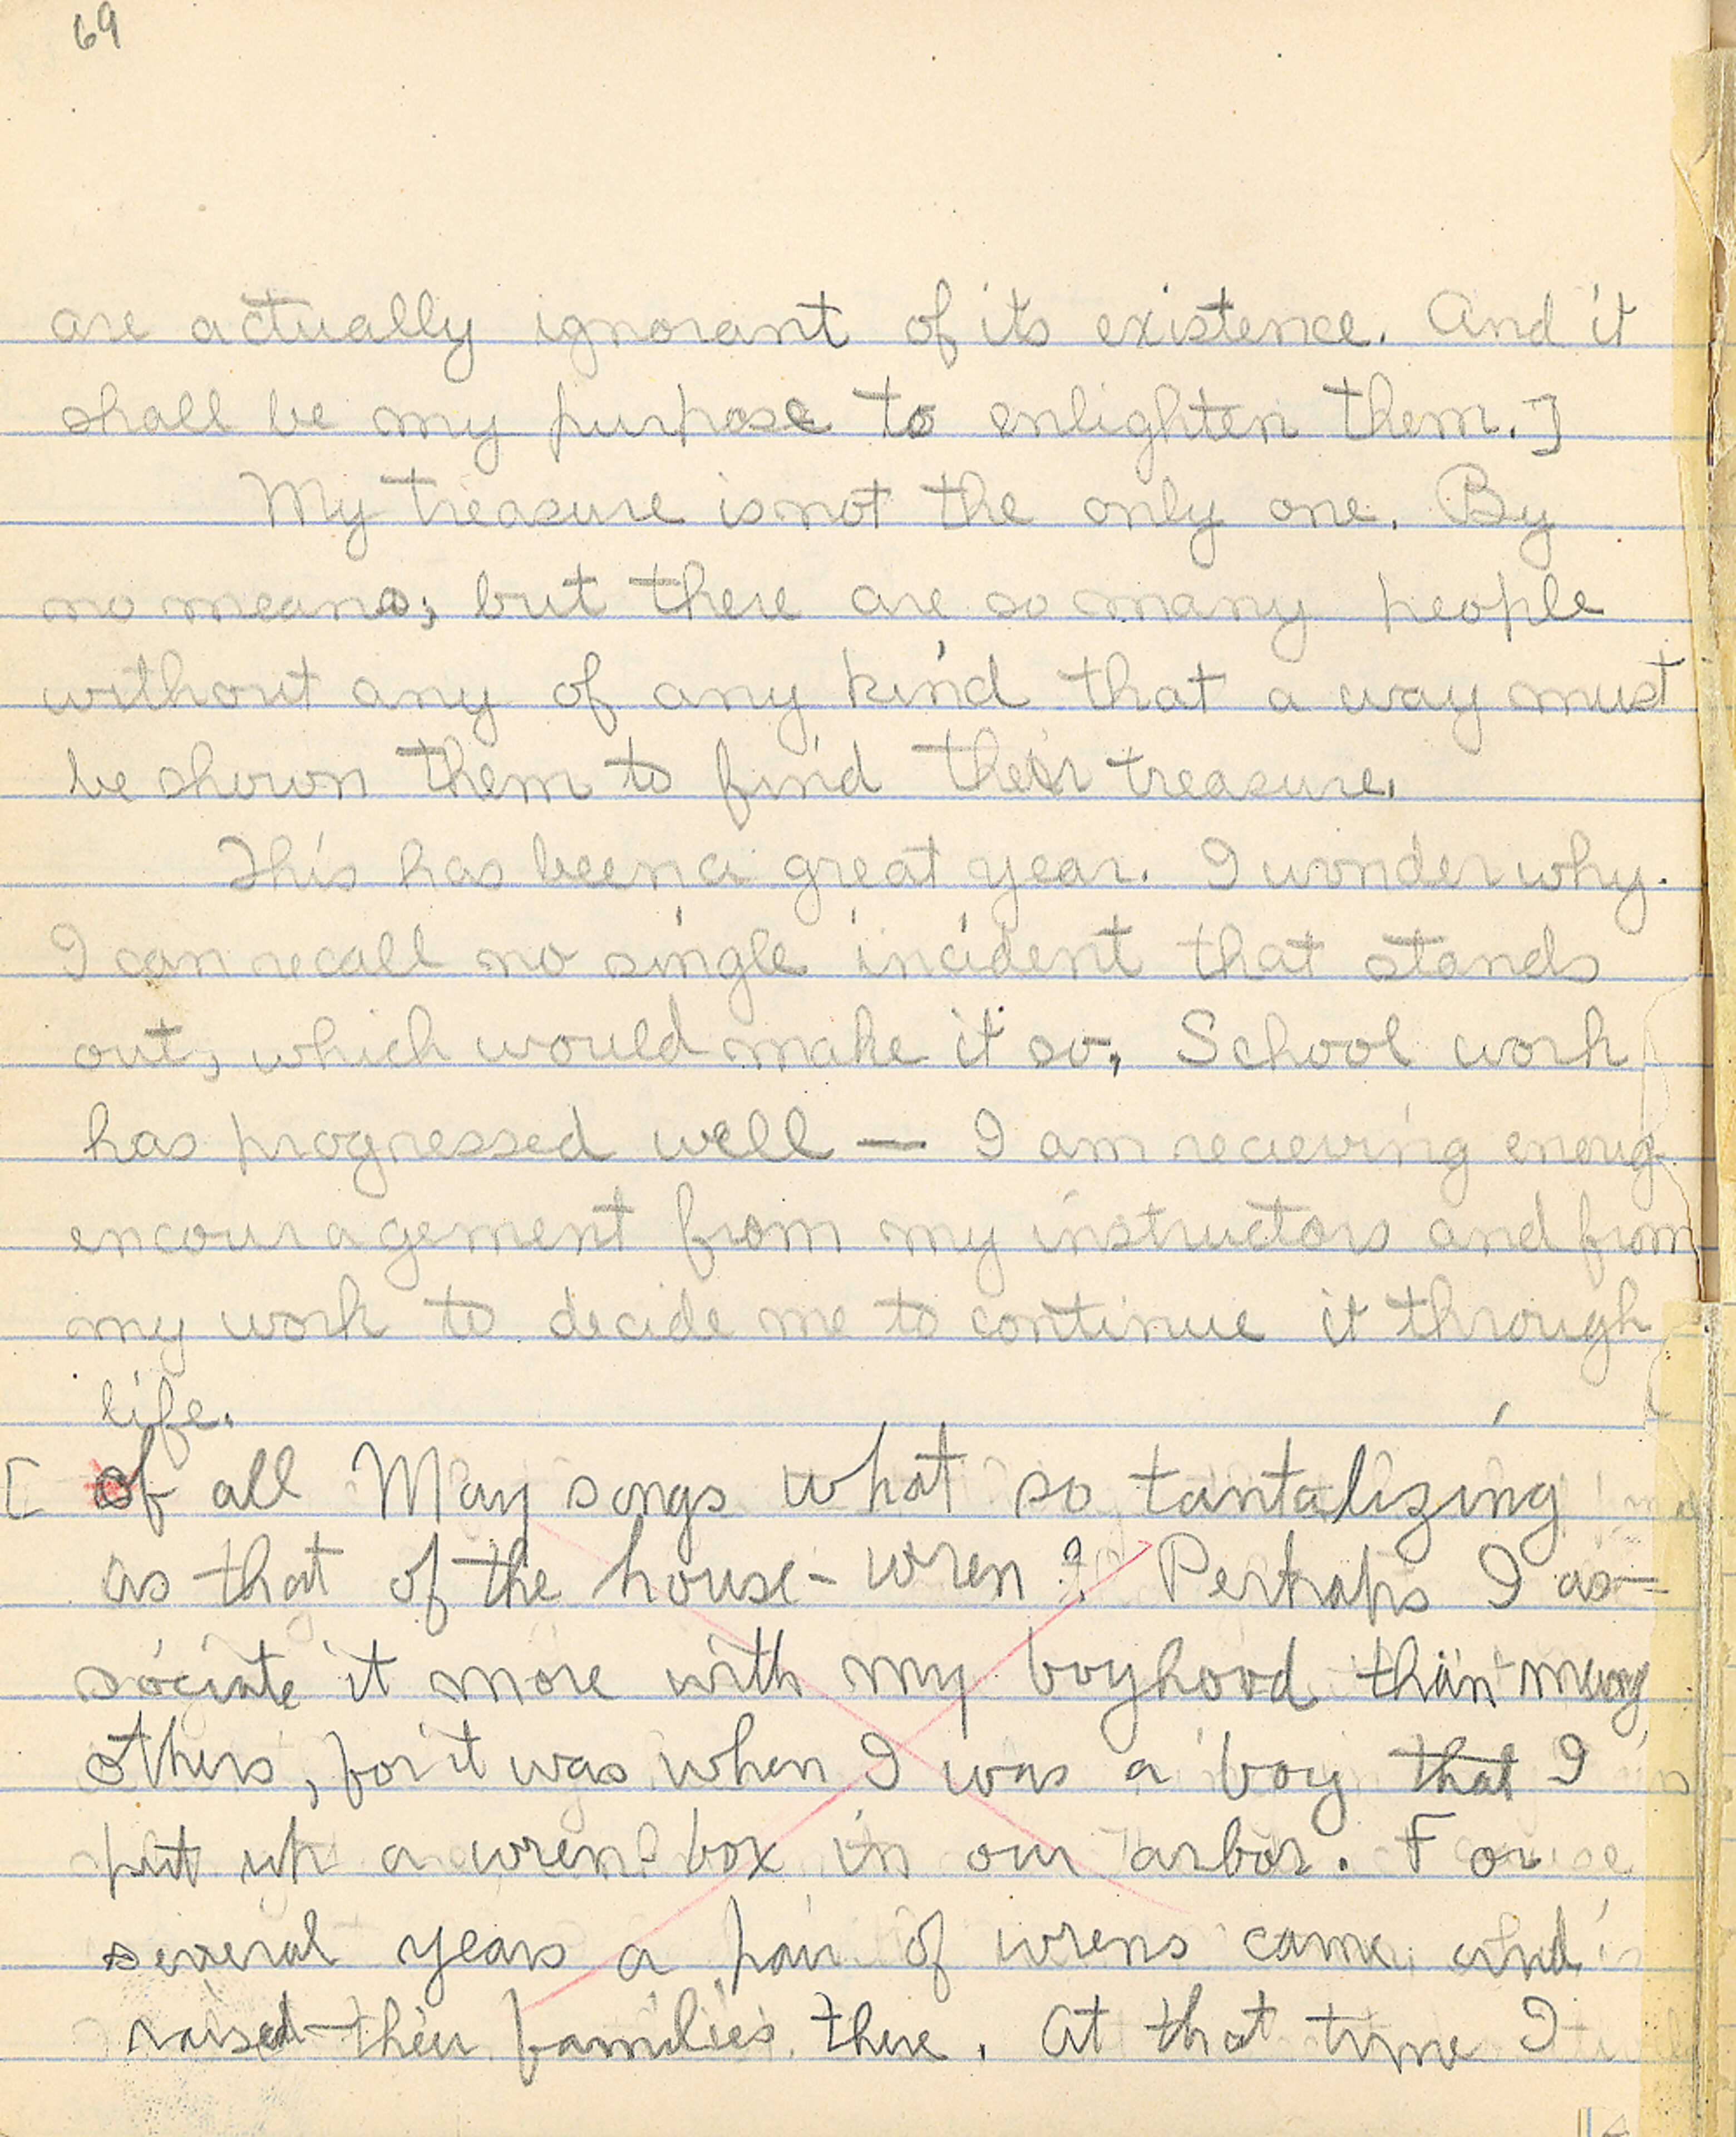 69
are actually ignorant of its existence. And it
shall be my purpose to enlighten them.]
My treasure is not the only one. By
no means; but there are so many people
without any of any kind that a way must
be shown them to find their treasure.
This has been a great year. I wonder why.
I can recall no single incident that stands
out, which would make it so. School work
has progressed well — I am recieving enoug
encouragement from my instructors and from
my work to decide me to continue it through
life.
[ Of all May songs what so tantalizing
as that of the house-wren? Perhaps I as-
sociate it more with my boyhood than many
others, for it was when I was a boy that I
put up a wren-box in our arbor. For
several years a pair of wrens came and
raised their families there. At that time I